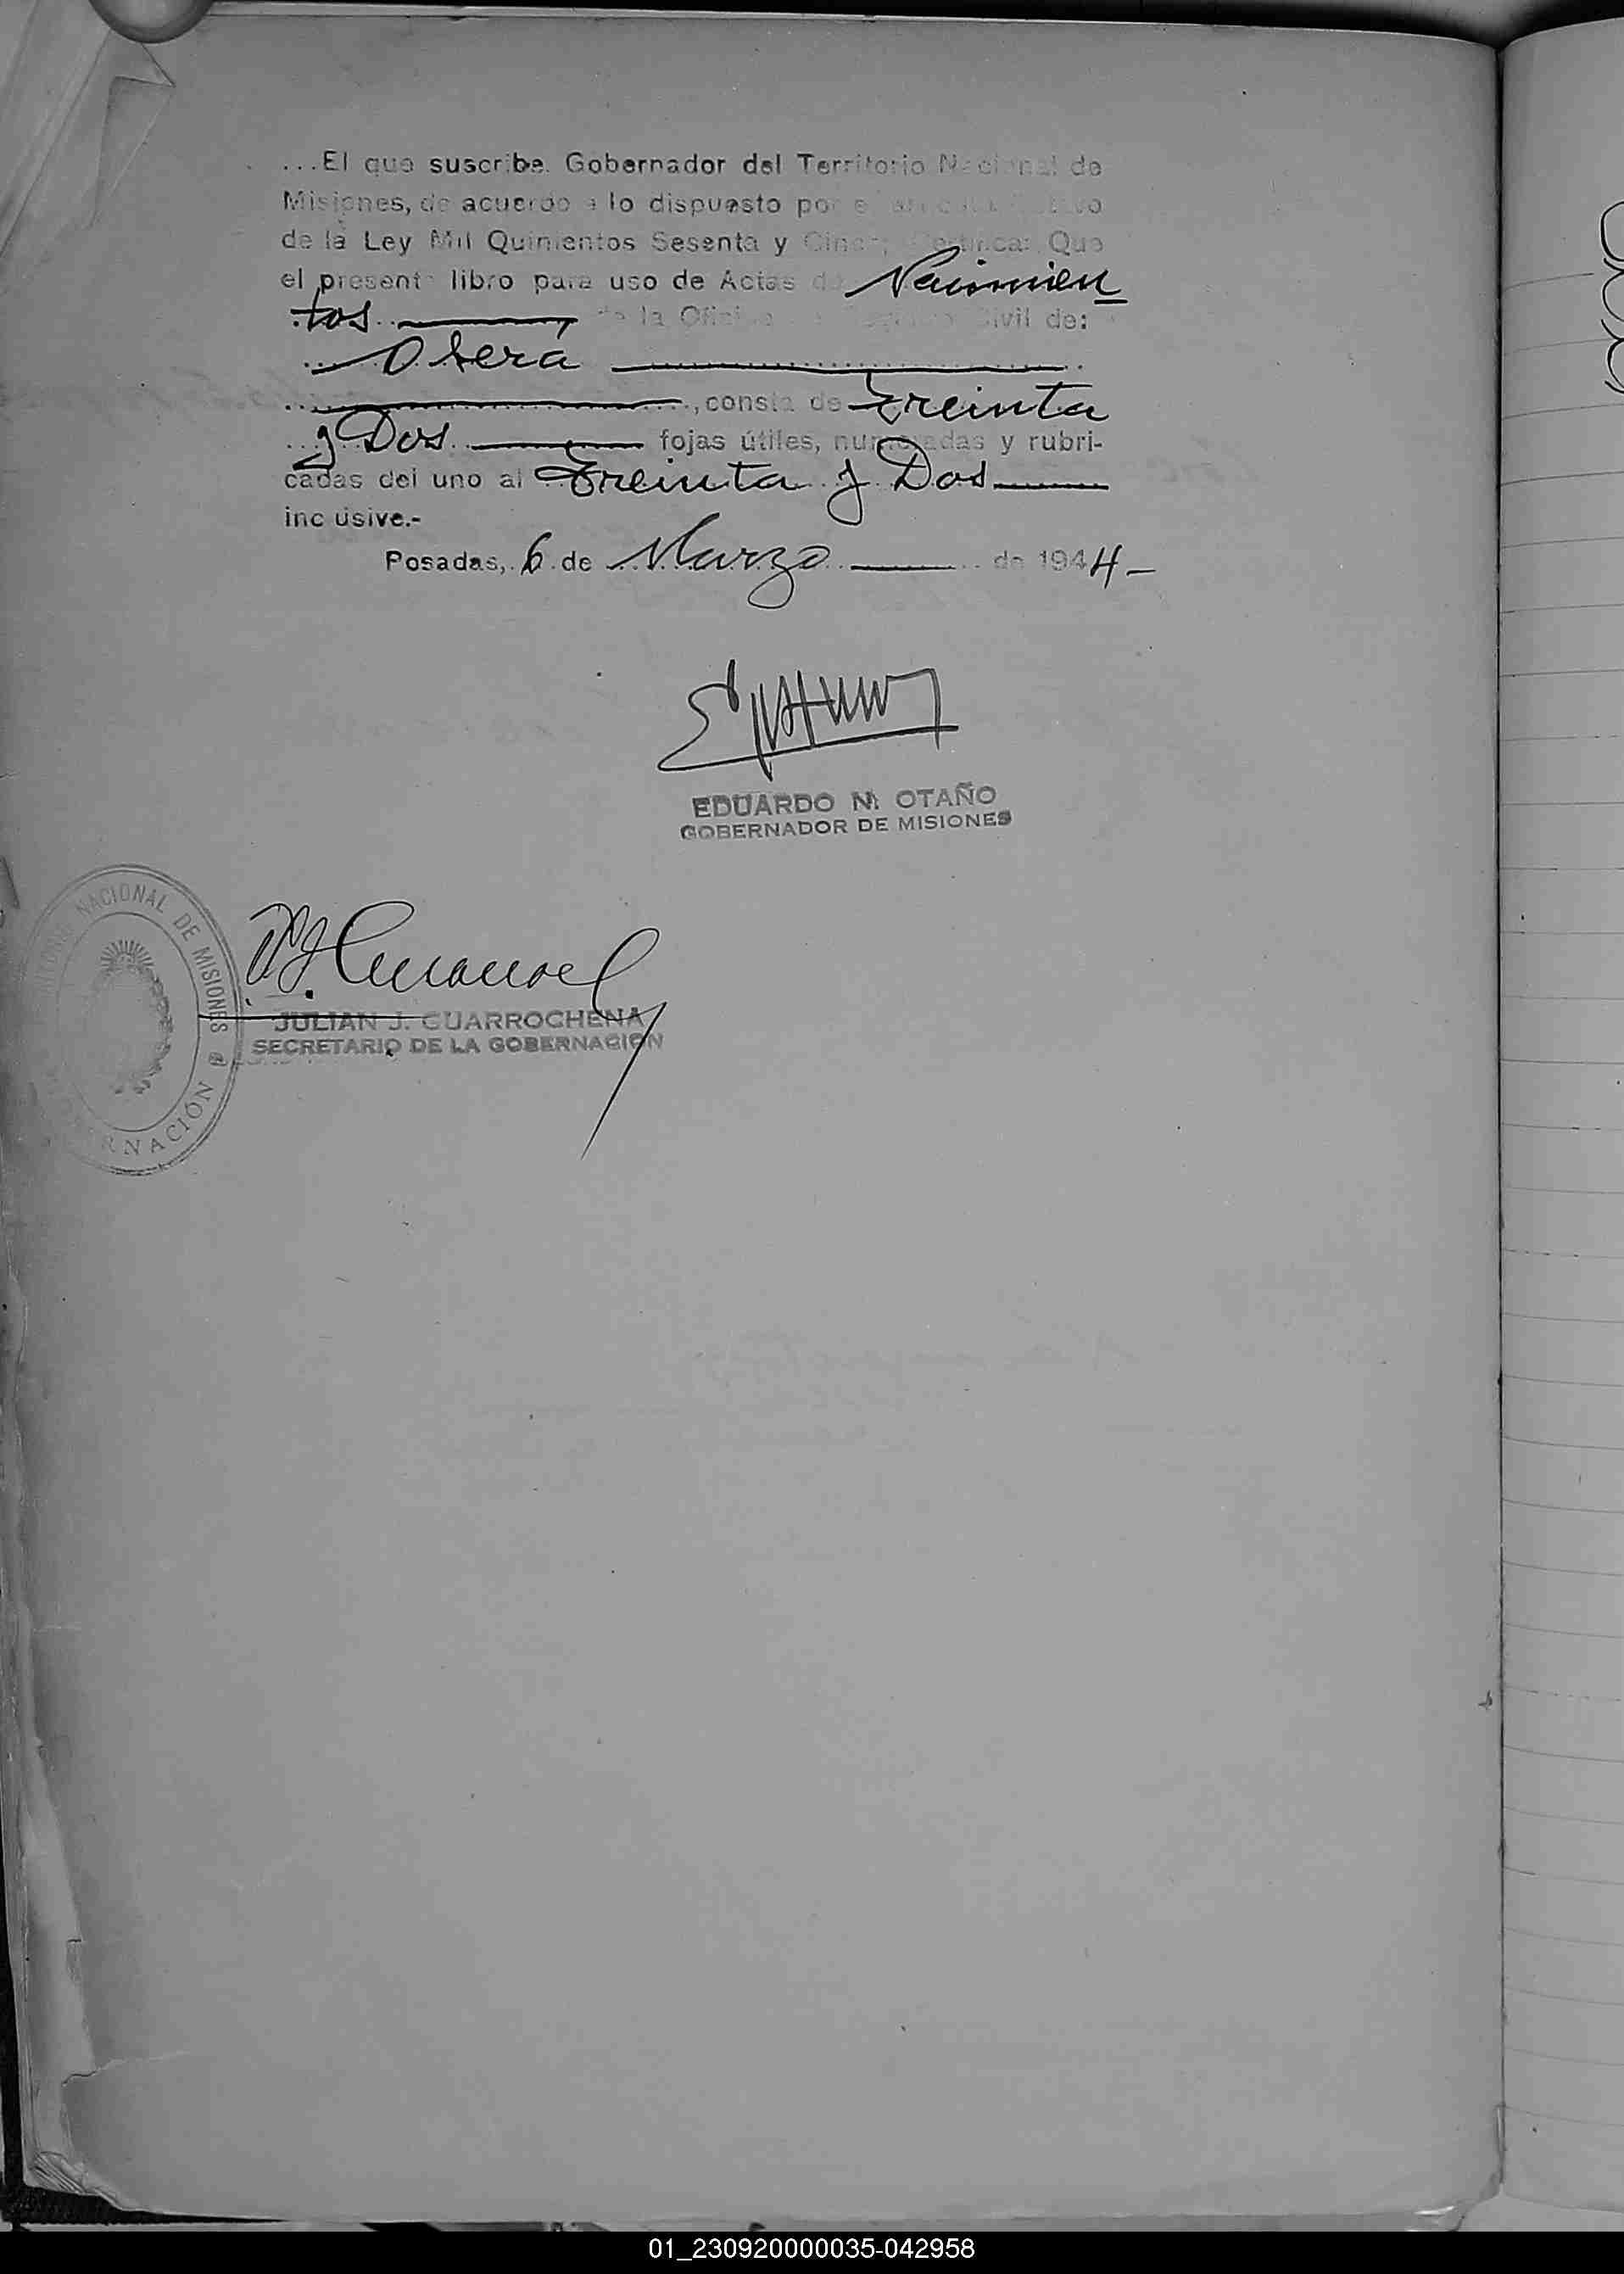 ...El que suscribe, Gobernador del Territorio Nacional de
Misiones, de acuerdo a lo dispuesto por el
de la Ley Mil Quinientos Sesenta y Cinco, Certifica: Que
el presente libro para uso de Actas de Nacimien
tos de la Oficina de Registro Civil de:
Oberá
, consta de Treinta
y Dos fojas útiles, numeradas y rubri-
cadas del uno al Treinta y Dos
inclusive.-
Posadas, 6 de Marzo de 1944-
EDUARDO M. OTAÑO
GOBERNADOR DE MISIONES
NACIONAL DE MISIONES
GOBERNACIÓN
JULIAN J. CUARROCHENA
SECRETARIO DE LA GOBERNACION
01_230920000035-042958